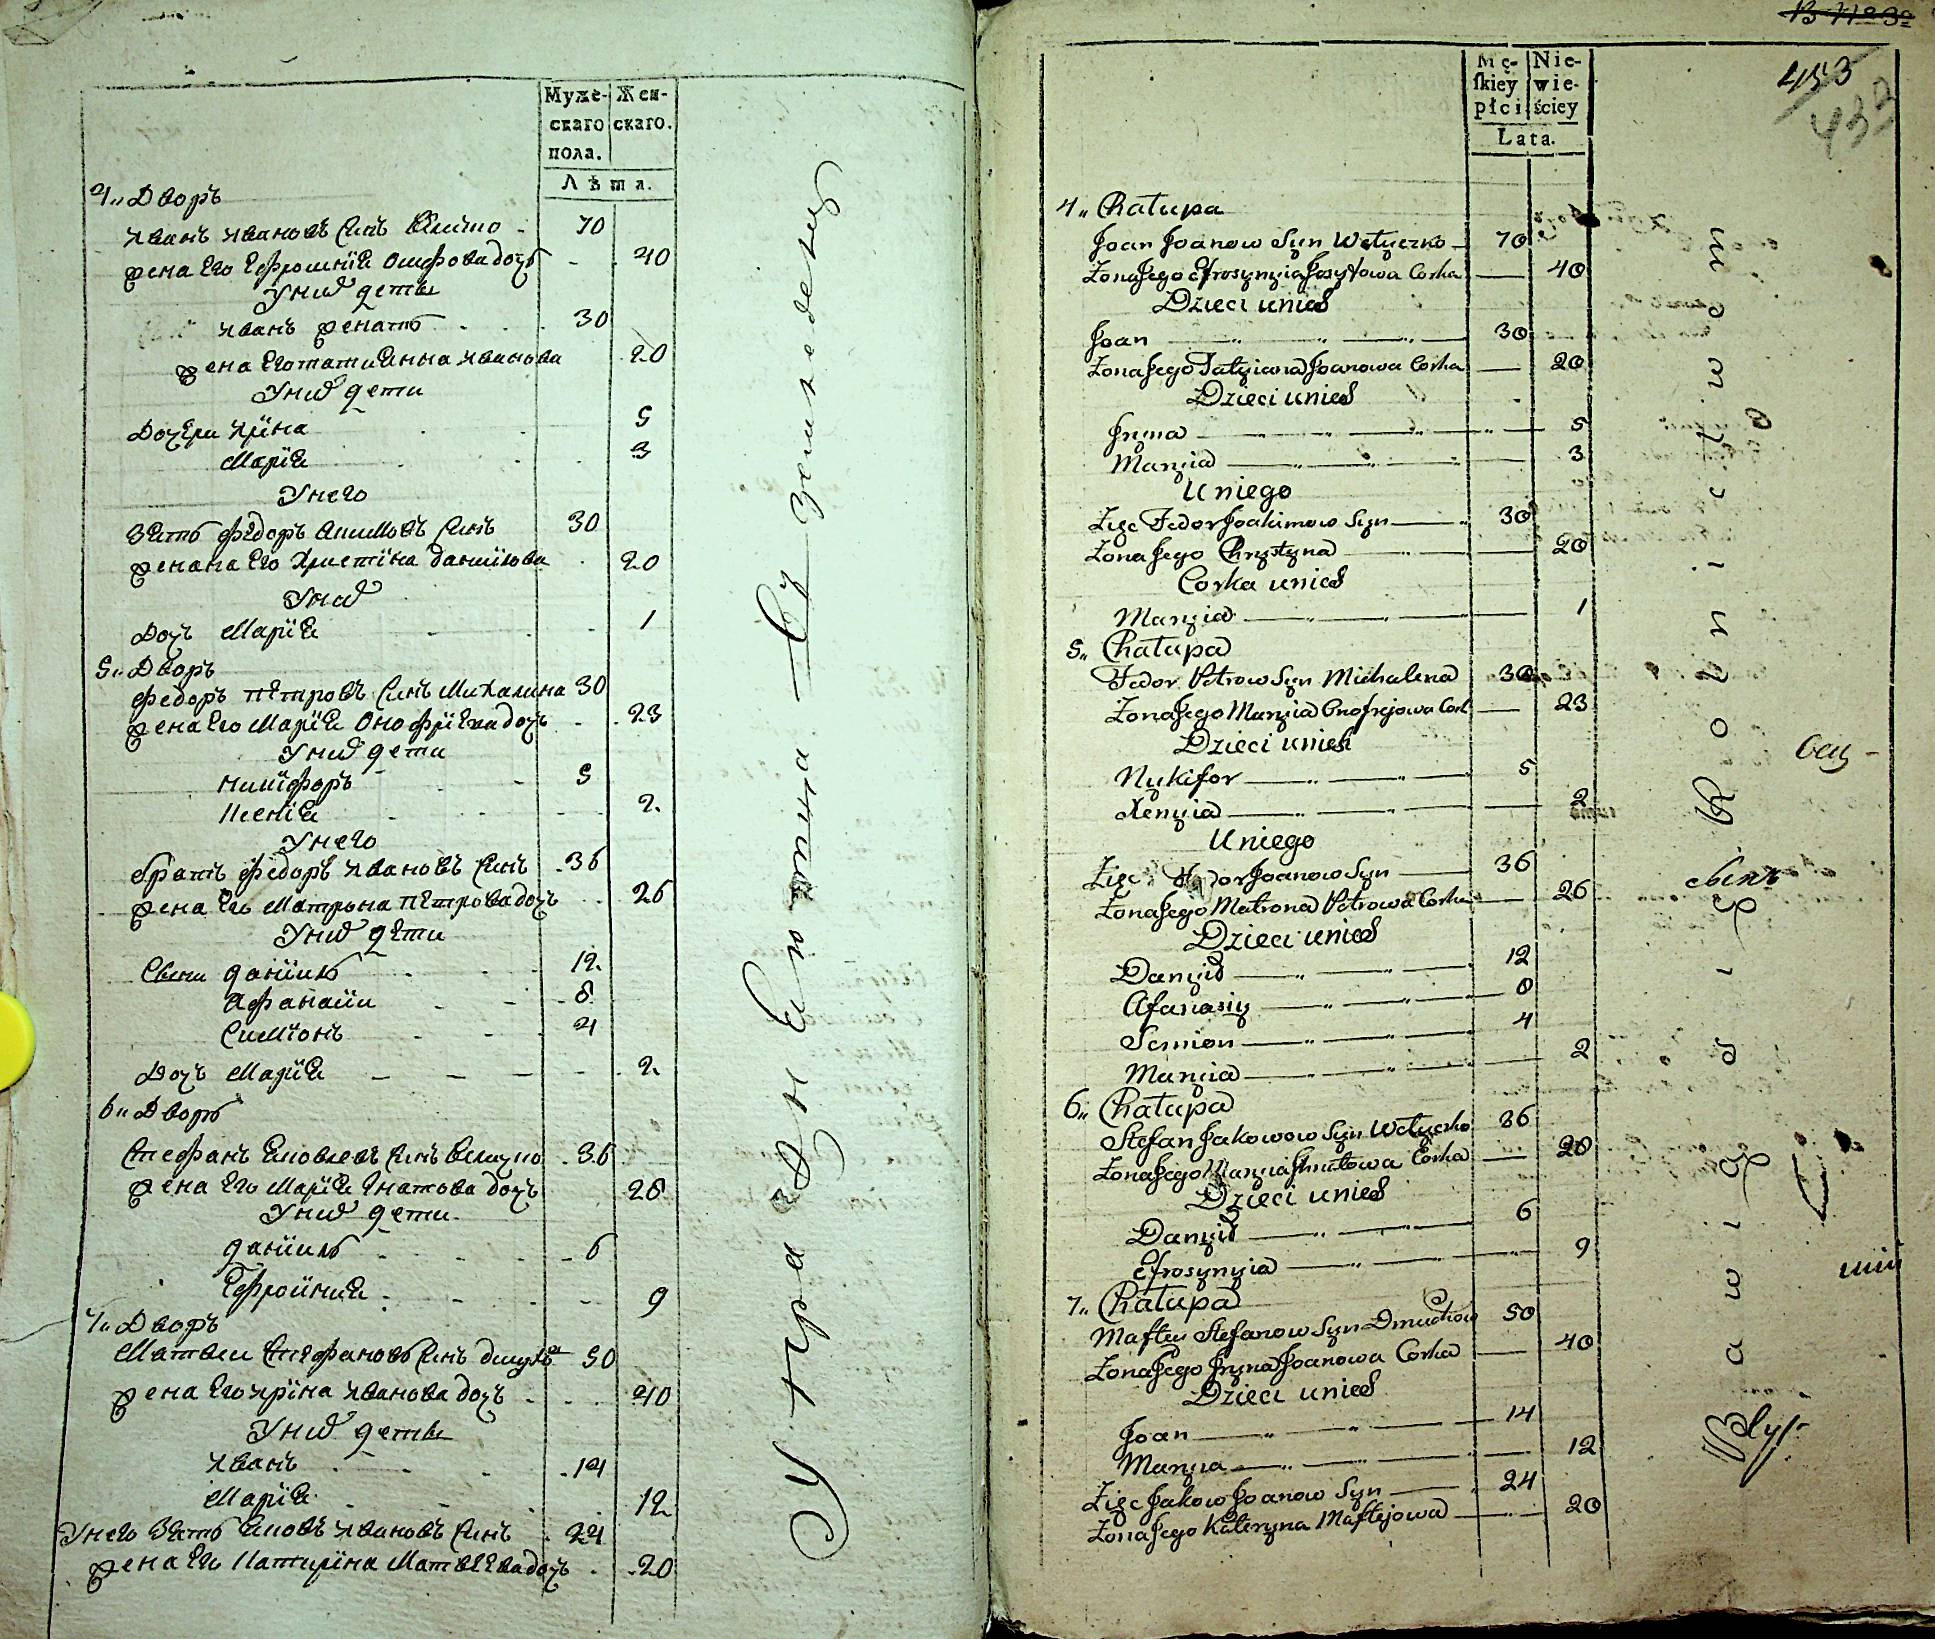 Муже-
скаго
пола.
Жен-
скаго.
Лѣта.
4„ Дворъ
Иванъ Ивановъ Синъ 70
жена Его Ефросинїя Осифова дочъ 40
У них дети
Иванъ женатъ 30
жена Его татиянна Иванова 20
У них дети
Дочери Ирина 5
Марїя 3
У него
Зять федоръ Синъ 30
Его Христїна данилова 20
У них
Дочъ Марїя 1
5„ Дворъ
федоръ петровъ Синъ Михалина 30
жена Его Марїя Онофрїева дочъ 23
У них дети
никїфоръ 5
ксенїя 2.
У него
братъ федоръ Ивановъ Синъ 36
жена Его Матрона петрова дочъ 26
У них дети
Сыни данїилъ 12.
Афанасїи 8
Симїонъ 4
Дочъ Марїя 2.
6„ Дворъ
Стефанъ Яковлевъ Синъ 36
жена Его Марїя Гнатова дочъ 28
У них дети
данїилъ 6
Ефросиния 9
7„ Дворъ
Матвеи Стефановъ Синъ 50
жена Его Ирїна Иванова дочъ 40
У них дети
Иванъ 14
Марїя 12
У него Зять Яковъ Ивановъ Синъ 24
жена Его Катирїна Матвеева дочъ 20
453
432
Mę-
ſkiey
płci
Nie-
wie-
ściey
Lata.
4„ Chałupa
Joan Joanow Syn Wełyczko 70
Żona Jego Efrosynyia Josyfowa Corka 40
Dzieci u nich
Joan 30
Żona Jego Tatyiana Joanowa Corka 20
Dzieci u nich
Jryna 5
Maryia 3
U niego
Zięc Fedor Joakimow Syn 30
Żona Jego Chrystyna 20
Corka u nich
Maryia 1
5„ Chałupa
Fedor Petrow Syn Michalena 30
Żona Jego Maryia Onofrejowa Cork 23
Dzieci u nich
Nykifor 5
Xenyia 2
U niego
Zięc Fedor Joanow Syn 36
Żona Jego Matrona Petrowa Corka 26
Dzieci u nich
Danyił 12
Afanasiy 8
Semion 4
Maryia 2
6„ Chałupa
Stefan Jakowow Syn Wełyczko 36
Żona Jego Maryia Jhnatowa Corka 28
Dzieci u nich
Danyił 6
Efrosynyia 9
7„ Chałupa
Maftey Stefanow Syn 50
Żona Jego Jryna Joanowa Corka 40
Dzieci u nich
Joan 14
Maryia 12
Zięc Jakow Joanow Syn 24
Żona Jego Kateryna Maftejowa 20